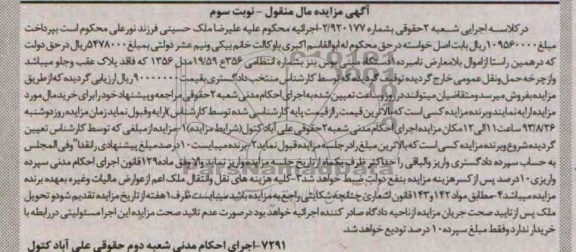 آگهی مزایده مال منقول - نوبت سوم
در کلاسه اجرایی شعبه ۲ حقوقی بشماره ۲/۹۲۰۱۷۷-اجرائیه محکوم علیه علیرضا ملک حسینی فرزند نورعلی محکوم است بپرداخت
مبلغ ۱۰۹۵۶۰۰۰۰ ریال بابت اصل خواسته در حق محکوم له ابوالقاسم اکبری با وکالت خانم بیکی و نیم عشر دولتی بمبلغ ۵۴۷۸۰۰۰ ریال در حق دولت
که در همین راستا از اموال بلامعارض نامبرده ۱ دستگاه بنز بشماره انتظامی ۳۵۶ع۱۹/۵۹ مدل ۱۳۵۶ که فاقد پلاک عقب و جلو میباشد
و از چرخه حمل و نقل عمومی خارج گردیده توقیف گردیده که توسط کارشناس منتخب دادگستری بقیمت ۹۰۰۰۰۰۰۰ ریال ارزیابی گردیده که از طریق
مزایده بفروش میرسد و متقاضیان میتوانند در روز و ساعت تعیین شده به اجرای احکام مدنی شعبه ۲ حقوقی مراجعه و پیشنهاد خود را برای خرید مال مورد
مزایده ارایه نمایند و برنده مزایده کسی است که بالاترین قیمت را از قیمت پایه کارشناسی شده توسط کارشناس ارایه و قبول نماید زمان مزایده روز دوشنبه
۹۳/۸/۲۶ ساعت ۱۱ الی ۱۲ مکان مزایده اجرای احکام مدنی شعبه ۲ حقوقی علی آباد کتول (شرایط مزایده) ۱-مزایده از مبلغی که توسط کارشناس تعیین
گردیده شروع و برنده مزایده کسی است که بالاترین مبلغ را در جلسه مزایده قبول نماید ۲-برنده میبایست ۱۰ درصد مبلغ پیشنهادی را نقدا" و فی المجلس
به حساب سپرده دادگستری واریز و الباقی را حداکثر ظرف یکماه از تاریخ جلسه مزایده واریز نماید والا وفق ماده ۱۲۹ قانون اجرای احکام مدنی سپرده
واریزی ۱۰ درصد پس از کسر هزینه مزایده بنفع دولت ضبط خواهد شد ۳-کلیه هزینه های نقل و انتقال ملک اعم از عوارض مالیات و غیره بعهده برنده
مزایده میباشد ۴-مطابق مواد ۱۴۲ و ۱۴۳ قانون چنانچه شکایتی راجع به مزایده باشد میبایست ظرف ۱ هفته از تاریخ مزایده تقدیم شود و تحویل
ملک پس از تایید صحت جریان مزایده از ناحیه دادگاه صادر کننده اجرائیه خواهد بود در صورت عدم تائید صحت مزایده این اجرا مسئولیتی در رابطه با
خریدار ندارد و فقط مبلغ سپرده ۱۰ درصد تودیع خواهد شد.
۷۲۹۱-اجرای احکام مدنی شعبه دوم حقوقی علی آباد کتول